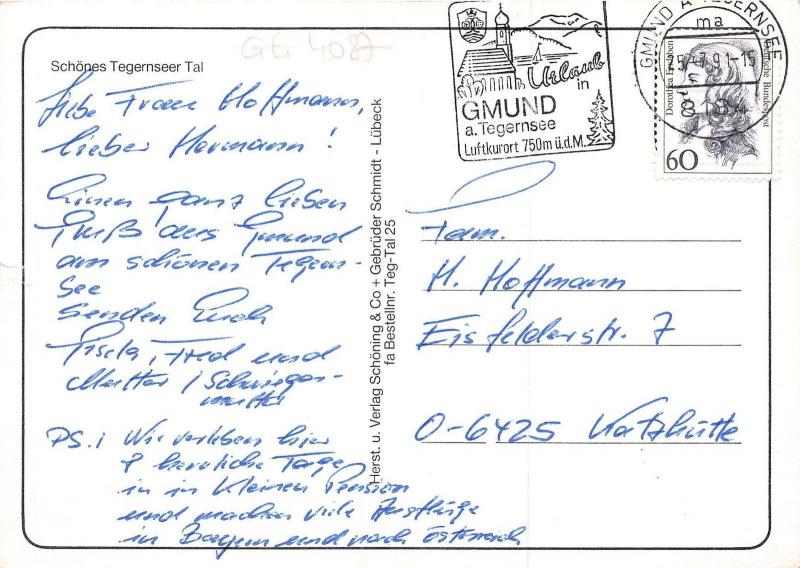 GG 4087
Schönes Tegernseer Tal
Liebe Frau Hoffmann,
lieber Hermann!
Einen ganz lieben
Gruß aus Gmund
am schönen Tegern-
see
senden Euch
Gisela, Fred und
Mutter / Schwieger-
mutter
PS.: Wir verleben hier
8 herrliche Tage
in in kleinen Pension
und machen viele Ausflüge
in Bayern und nach Österreich
Herst. u. Verlag Schöning & Co + Gebrüder Schmidt - Lübeck
fa Bestellnr. Teg-Tal 25
Urlaub
in
GMUND
a. Tegernsee
Luftkurort 750m ü.d.M.
GMUND A TEGERNSEE
ma
-7.91-15
8184
Dorothea Erxleben
Deutsche Bundespost
60
Fam.
H. Hoffmann
Eisfelderstr. 7
O-6425 Katzhütte